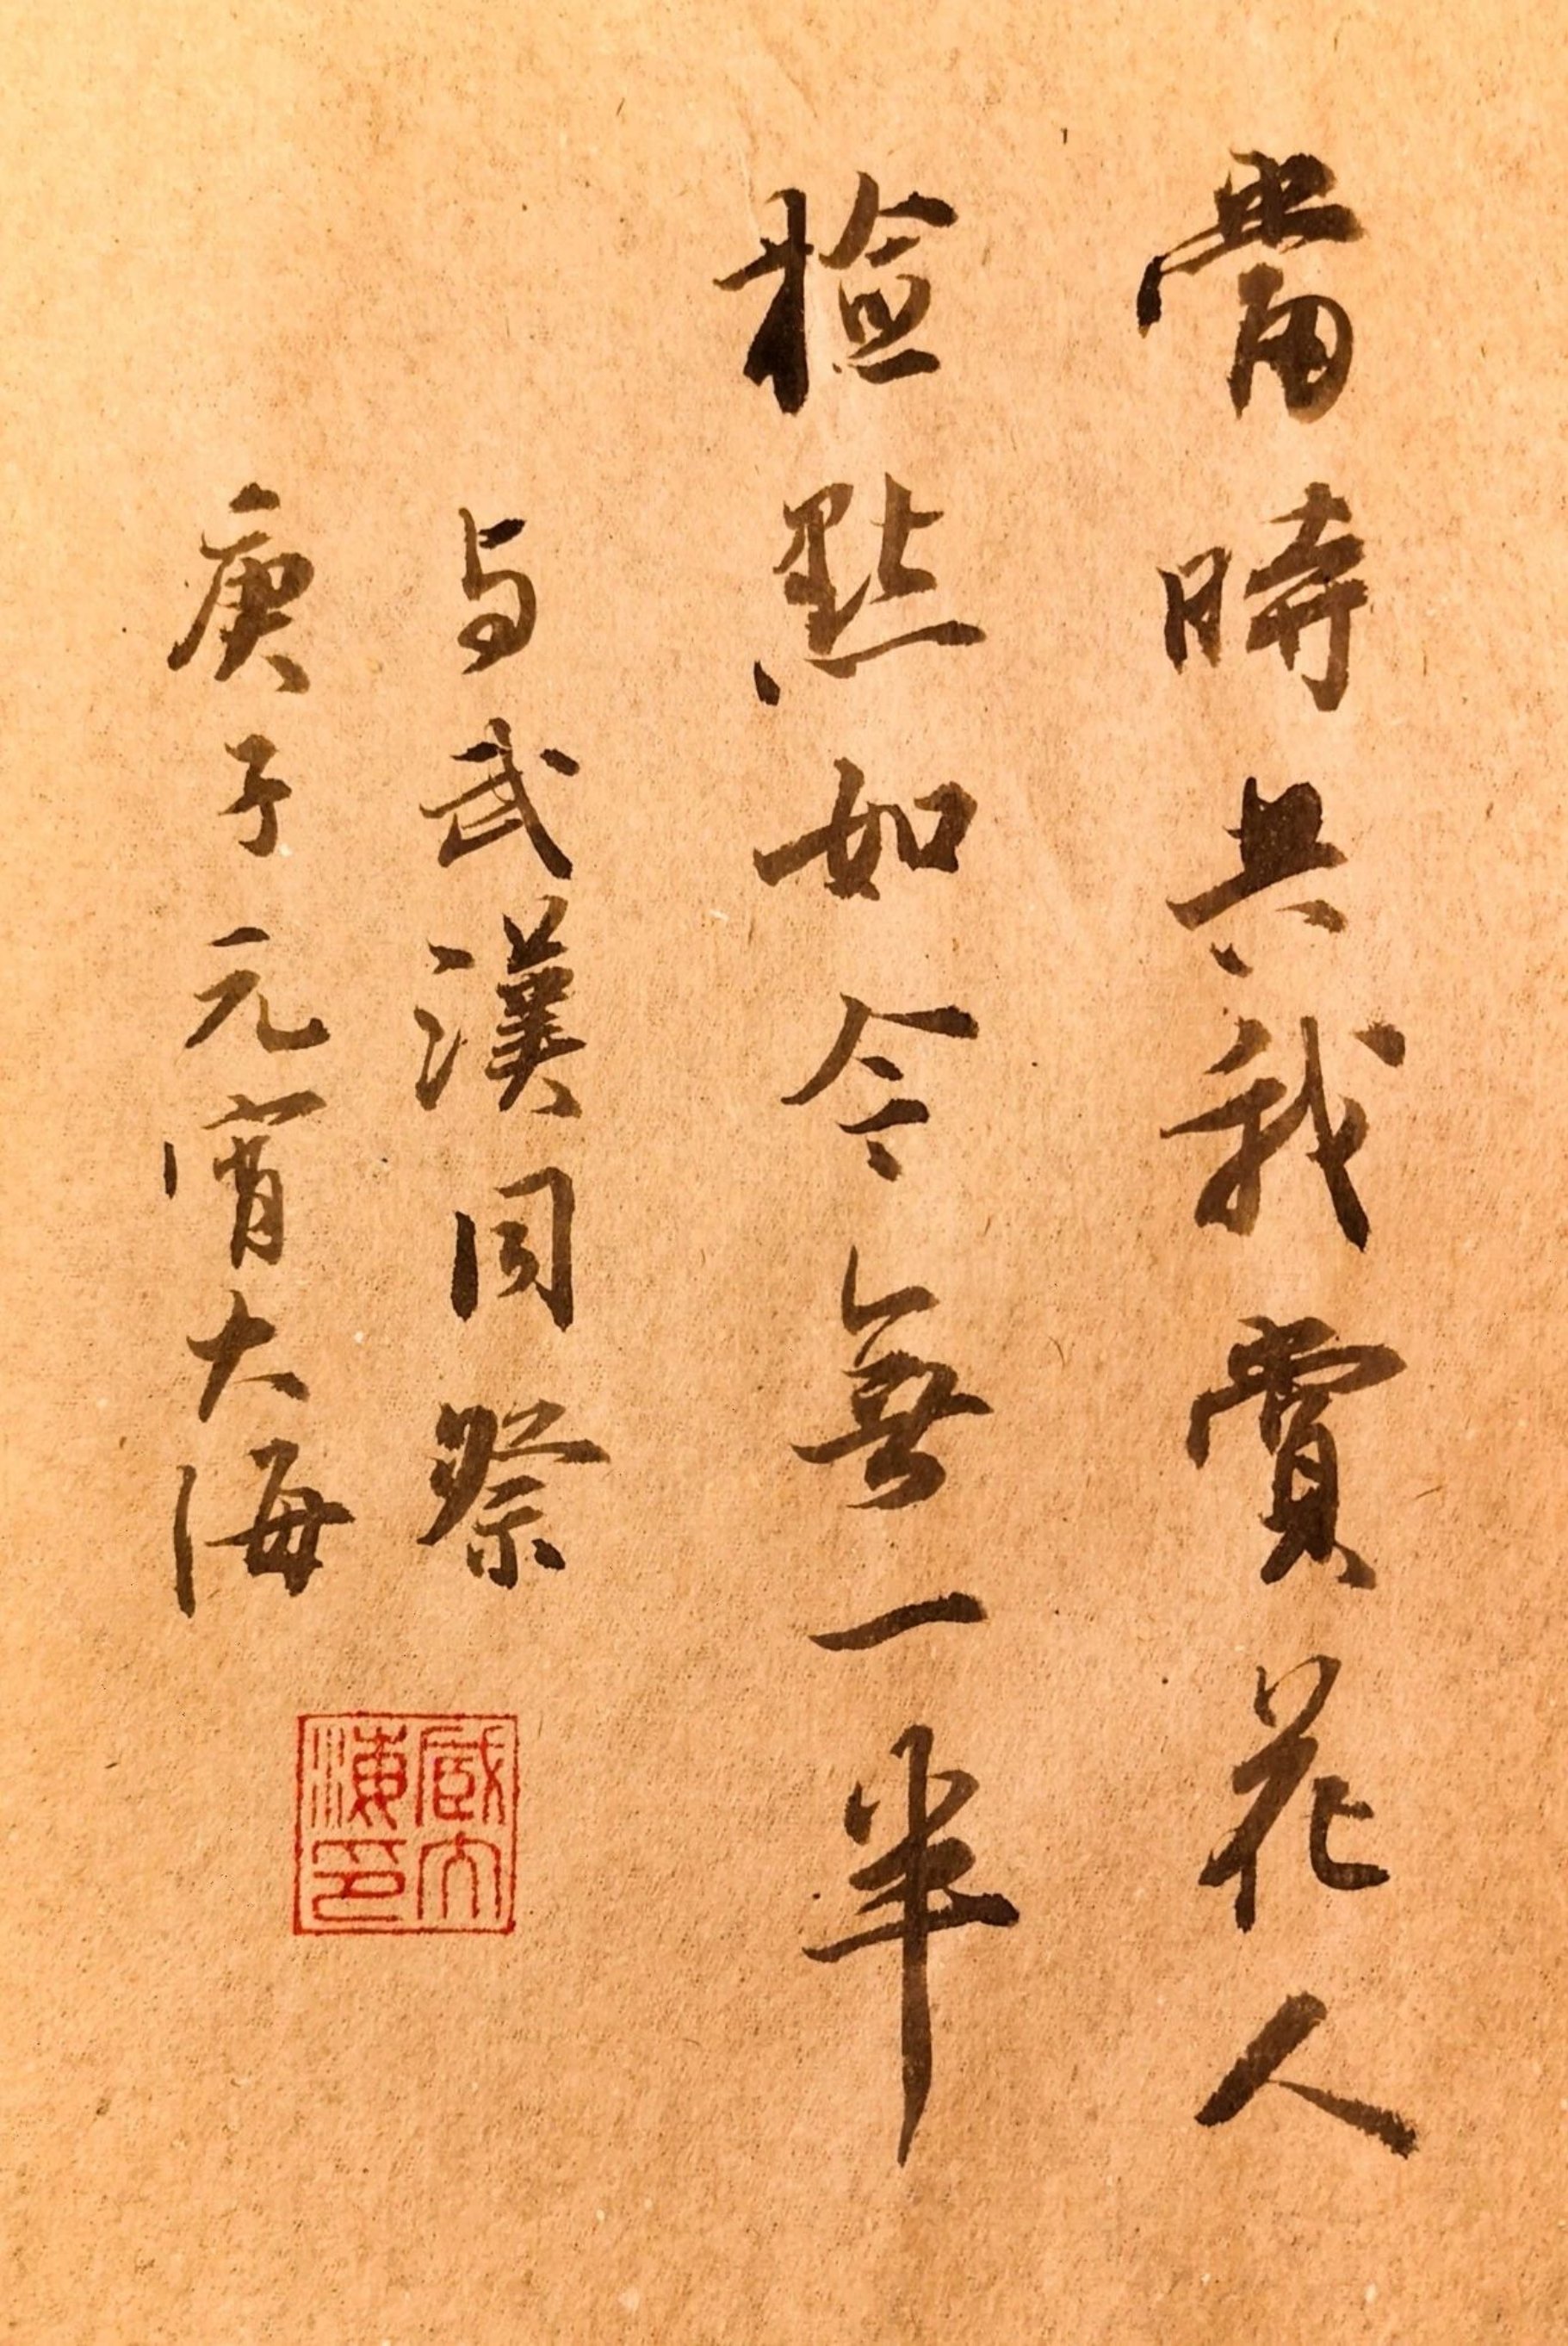 當時共我賞花人
檢點如今無一半
与武漢同祭
庚子元宵大海
臧大海印